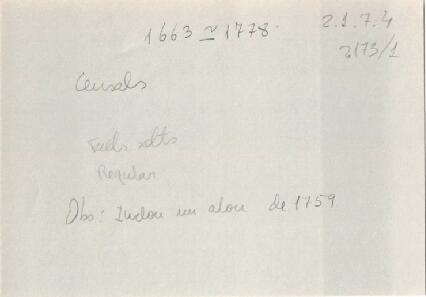 1663 ~ 1778.
2.1.7.4
2173/1
Censals
Fulls solts
Regular
Obs: Inclou un alou de 1759